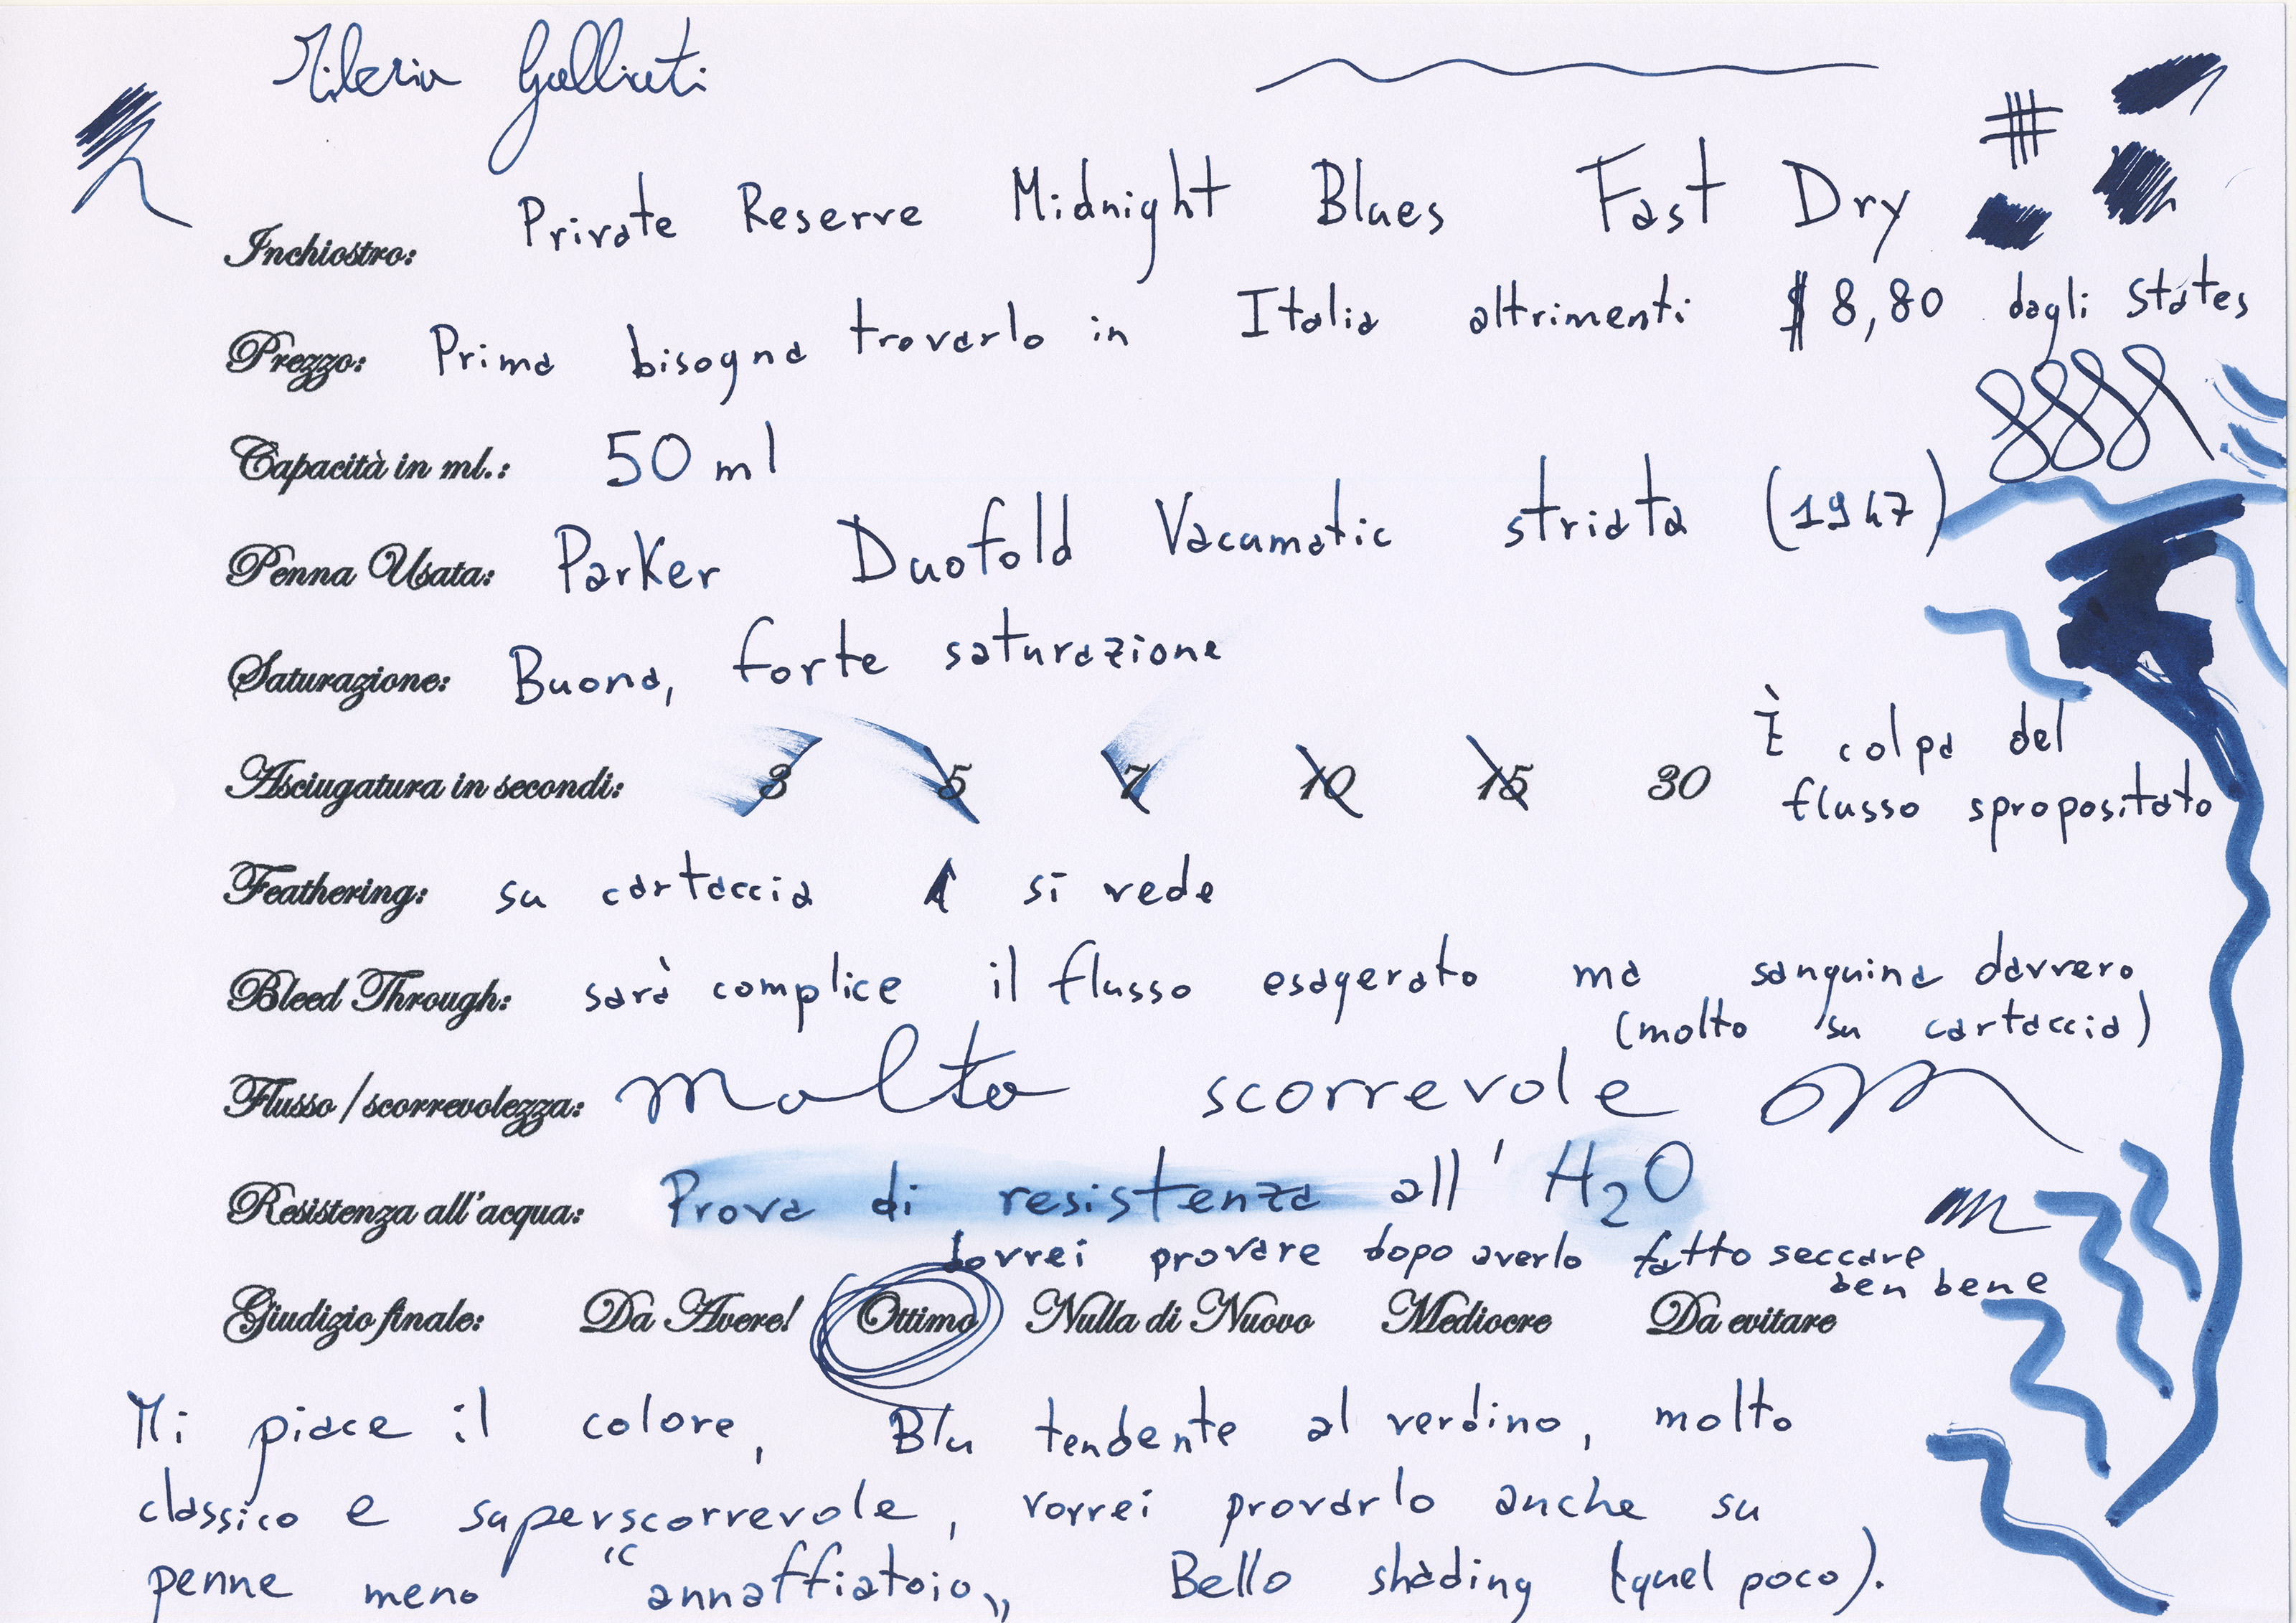 Inchiostro: Private Reserve Midnight Blues Fast Dry
Prezzo: Prima bisogna trovarlo in Italia altrimenti $ 8,80 dagli States
Capacità in ml.: 50 ml
Penna Usata: Parker Duofold Vacumatic striata (1947)
Saturazione: Buona, forte saturazione
Asciugatura in secondi: 3 5 7 10 15 30 È colpa del
flusso spropositato
Feathering: su cartaccia si vede
Bleed Through: sarà complice il flusso esagerato ma sanguina davvero
(molto su cartaccia)
Flusso / scorrevolezza: Molto scorrevole
Resistenza all'acqua: Prova di resistenza all' H2O
dovrei provare dopo averlo fatto seccare
ben bene
Giudizio finale: Da Avere! Ottimo Nulla di Nuovo Mediocre Da evitare
Mi piace il colore, Blu tendente al verdino, molto
classico e superscorrevole, vorrei provarlo anche su
penne meno "annaffiatoio„ Bello shading (quel poco).